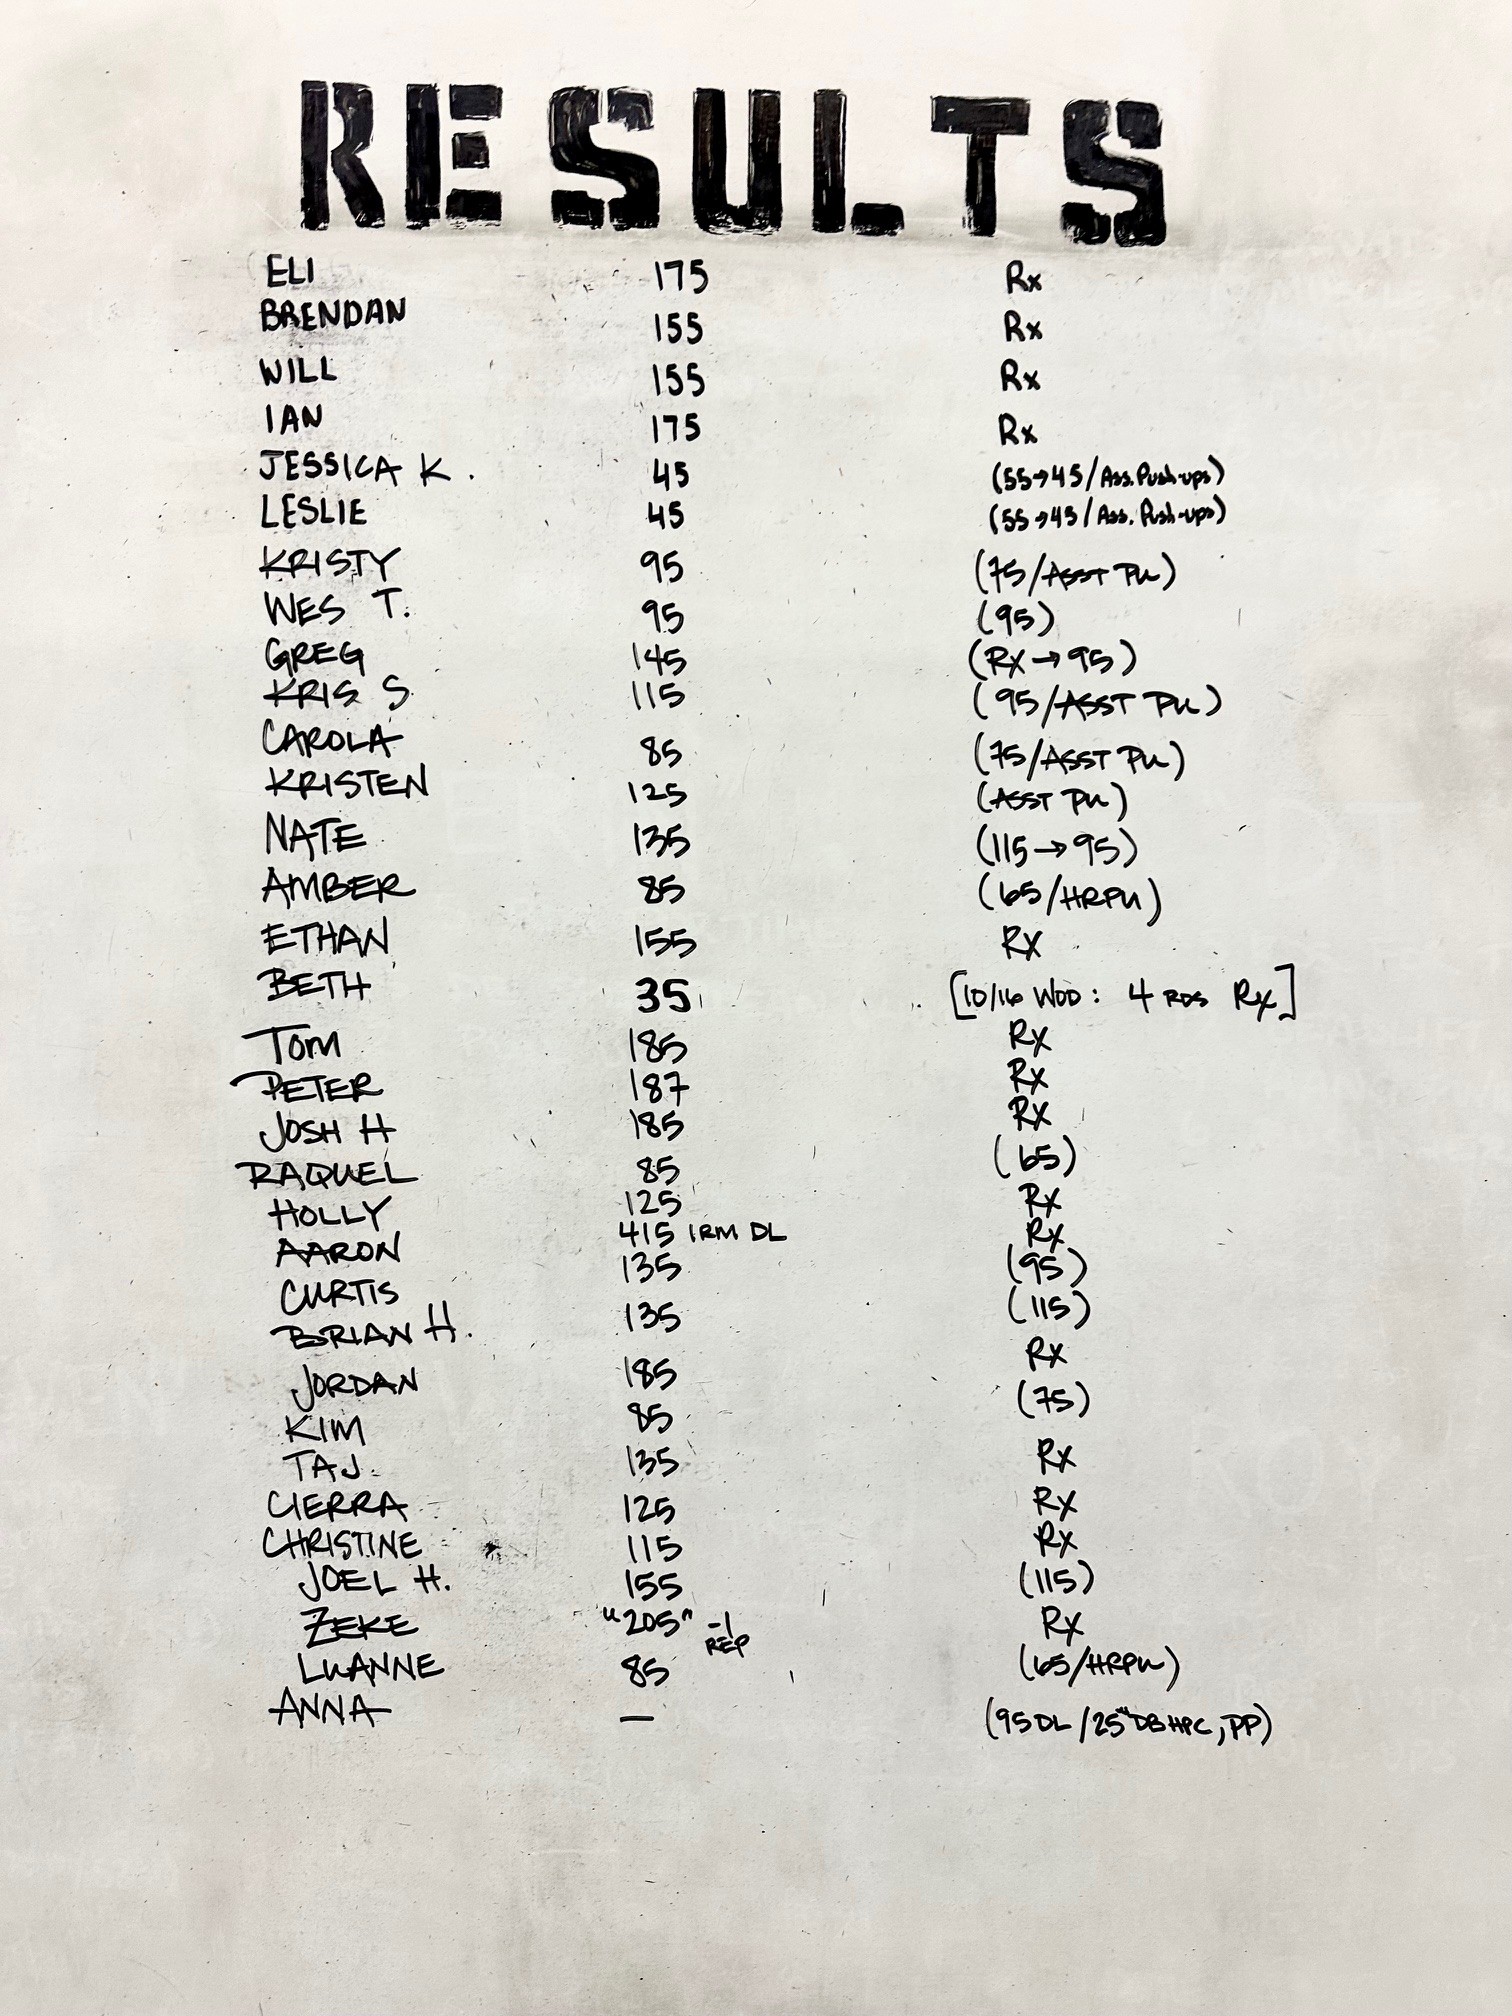 RESULTS
ELI 175 Rx
BRENDAN 155 Rx
WILL 155 Rx
IAN 175 Rx
JESSICA K. 45 (55→45/Ass. Push-ups)
LESLIE 45 (55→45/Ass. Push-ups)
KRISTY 95 (75/ASST PU)
WES T. 95 (95)
GREG 145 (RX→95)
KRIS S 115 (95/ASST PU)
CAROLA 85 (75/ASST PU)
KRISTEN 125 (ASST PU)
NATE 135 (115→95)
AMBER 85 (65/HRPU)
ETHAN 155 RX
BETH 35 [10/16 WOD: 4 RDS Rx]
Tom 185 RX
PETER 187 RX
JOSH H 185 RX
RAQUEL 85 (65)
HOLLY 125 RX
AARON 415 1RM DL RX
CURTIS 135 (95)
BRIAN H. 135 (115)
JORDAN 185 RX
KIM 85 (75)
TAJ 135 RX
CIERRA 125 RX
CHRISTINE 115 RX
JOEL H. 155 (115)
ZEKE "205" -1 REP RX
LUANNE 85 (65/HRPU)
ANNA — (95 DL/25" DB HPC, PP)